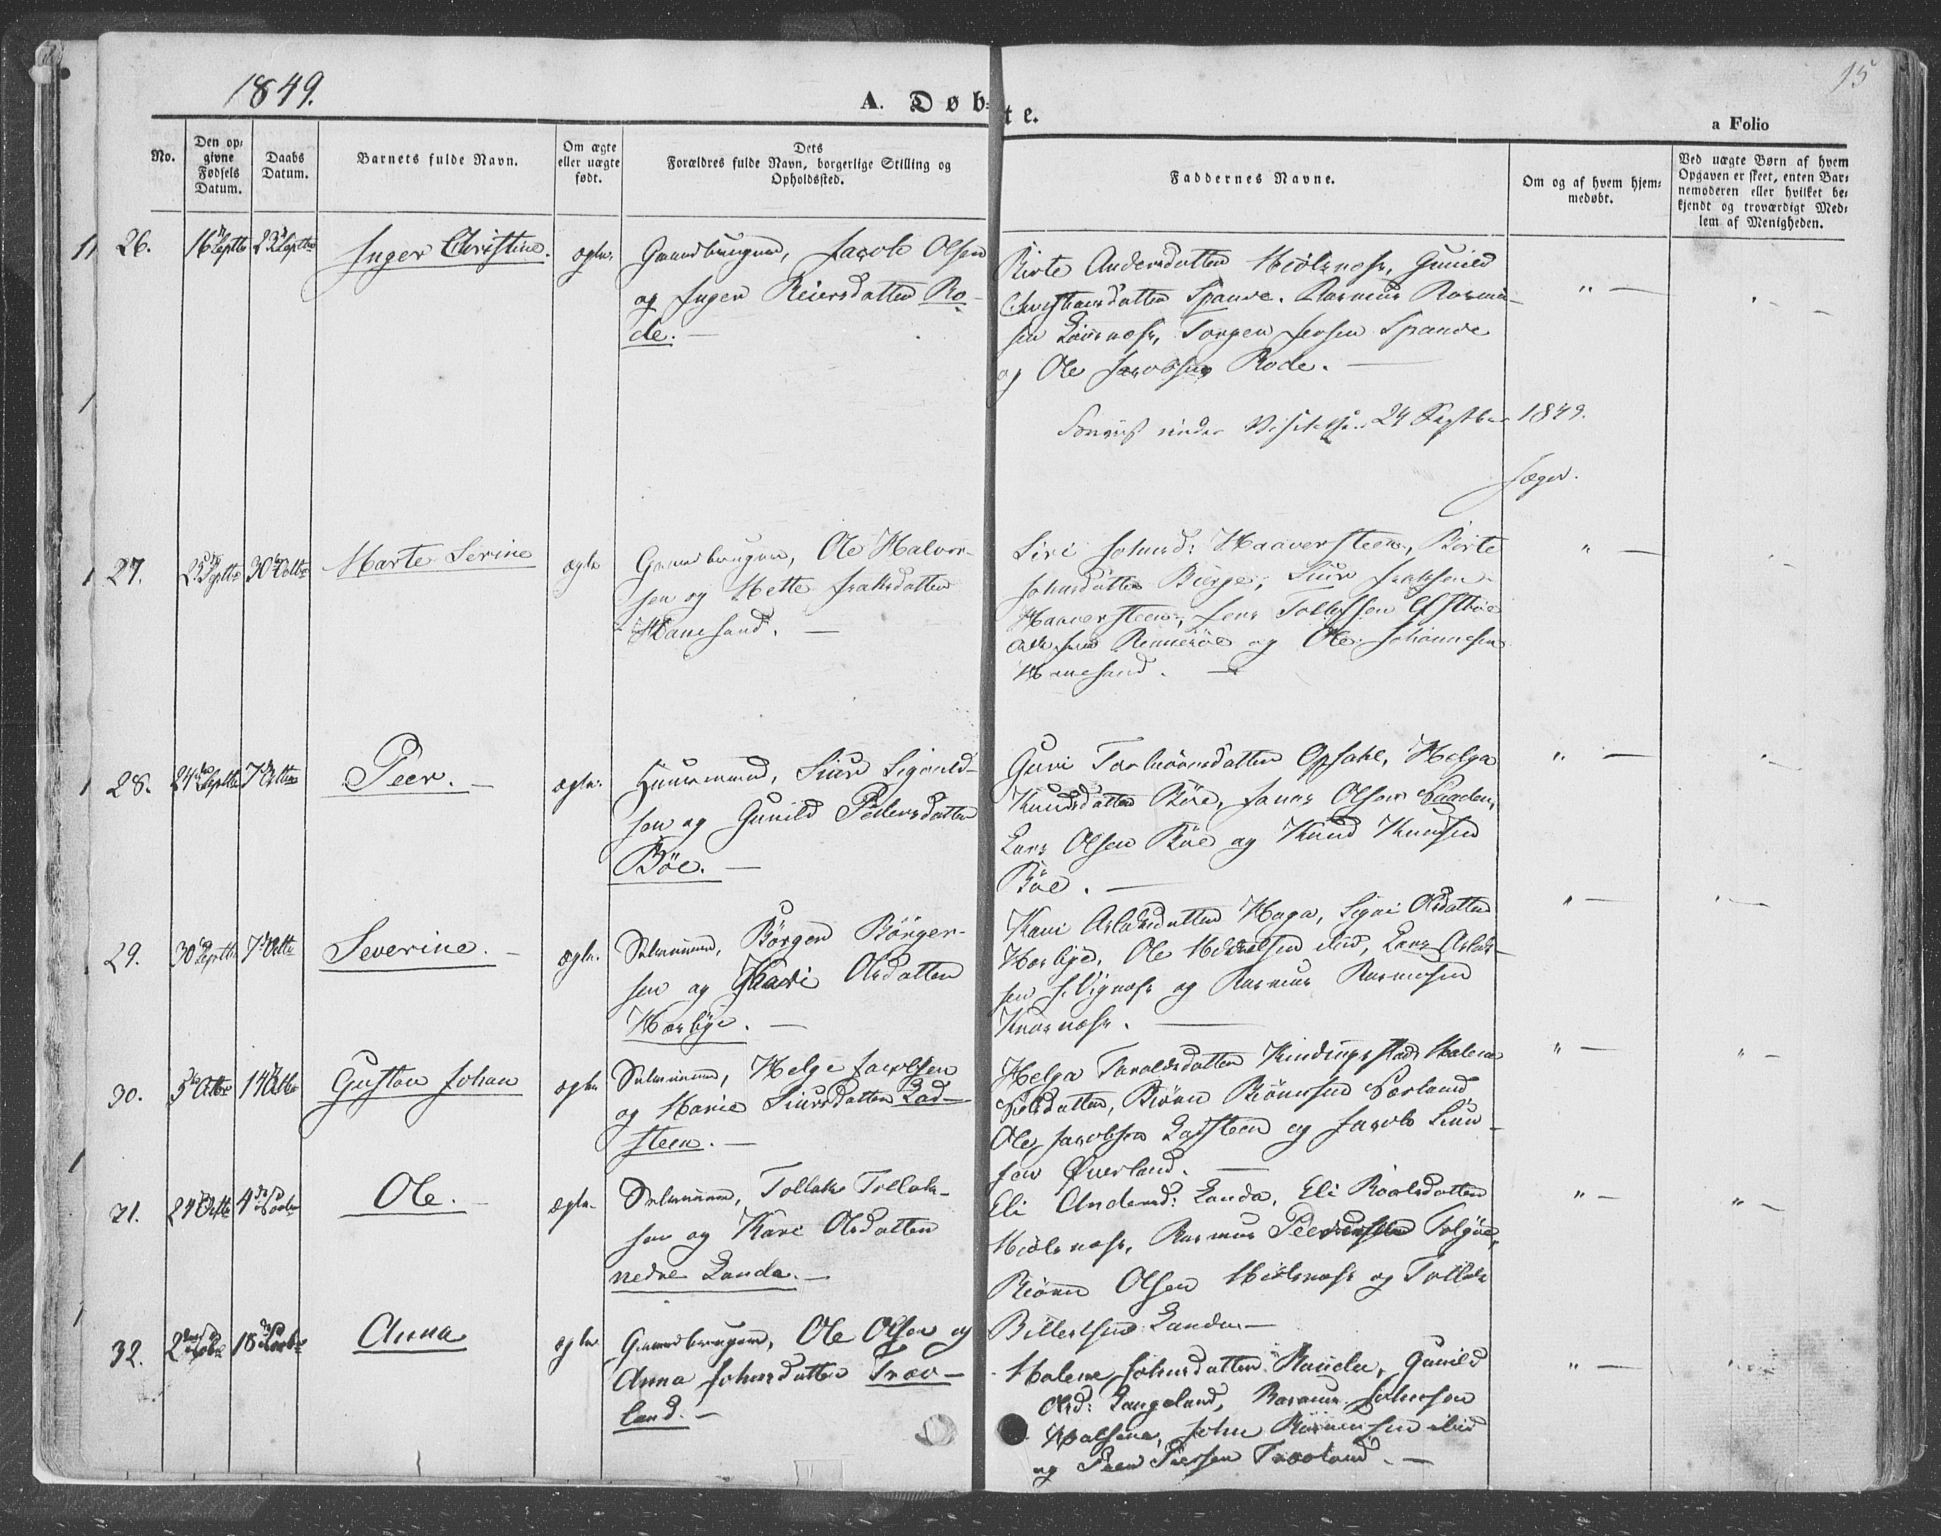 1849.
15
A. Døbte.
a Folio
No.
Den op-
givne
Fødsels
Datum.
Daabs
Datum.
Barnets fulde Navn.
Om ægte
eller uægte
født.
Dets
Forældres fulde Navn, borgerlige Stilling og
Opholdssted.
Faddernes Navne.
Om og af hvem hjem-
medøbt.
Ved uægte Børn af hvem
Opgaven er skeet, enten Bar-
nemoderen eller hvilket be-
kjendt og troværdigt Med-
lem af Menigheden.
26.
16 Septbr
23 Septbr
Inger Christine.
ægte.
Gaardbruger, Jacob Olsen
og Inger Reiersdatter Ro-
de. —
Birte Andersdatter Hiölsnæs, Gunild
Christiansdatter Spande. Rasmus Rasmu-
sen, Torger Jensen Spande
og Ole Jacobsen Rode. —
" —
under Visitatsen 24 Septber 1849.
27.
23 Septbr
30 Septbr
Marte Serine
ægte
Gaardbruger, Ole Halvor-
sen og Mette Isaksdatter
Hanesand. —
Siri Johnsd: Haaversteen, Birte
Johnsdatter Börge, Siur Isaksen
Haaversteen, Jens Tollefsen
Rennesöe og Ole Johannesen
Hanesand. —
" —
28.
24de Septbr
7de Octbr
Peer. —
ægte.
Huusmand, Siur Sigvald-
sen og Gunild Pedersdatter
Böe. —
Guri Torbiörnsdatter Opsahl, Helga
Knudsdatter Böe, Jonas Olsen
Lars Olsen Böe og Knud Knudsen
Böe. —
" —
29.
30 Septbr
7de Octbr
Severine. —
ægte.
Selveier, Börger Börger-
sen og Kari Olsdatter
Horbye. —
Kari Aslaksdatter Haga, Sigri Olsdatter
Horbye, Ole Mikkelsen ibid, Lars Aslak-
sen Vignæs og Rasmus Rasmusen
Knarnæs. —
" —
30.
5te Octbr
14 Octbr
Gustav Johan
ægte
Selveier, Helge Jacobsen
og Marie Siursdatter Lad-
steen. —
Helga Taraldsdatter Kindingstad, Malene
Nielsdatter, Biörn Biörnsen Sörland,
Ole Jacobsen Ladsteen og Jacob Siur-
sen Øverland. —
" —
31.
24 Octbr
4de Novbr
Ole. —
ægte.
Selveier, Tollak Tollak-
sen og Kari Olsdatter
nedre Landa. —
Eli Andersd: Landa, Eli Roalsdatter
Hiölsnæs, Rasmus Peersen Talgöe,
Biörn Olsen Hiölsnæs og Tollak
Villertsen Landa —
" —
32.
2den Novbr
18de Novbr
Anna
ægte
Gaardbruger, Ole Olsen og
Anna Johnsdatter Træe-
land. —
Malene Johnsdatter Randa, Gunild
Olsd: Langeland, Rasmus Johnsen
Halsene, John Rasmussen ibid
og Peer Siursen Træeland. —
" —